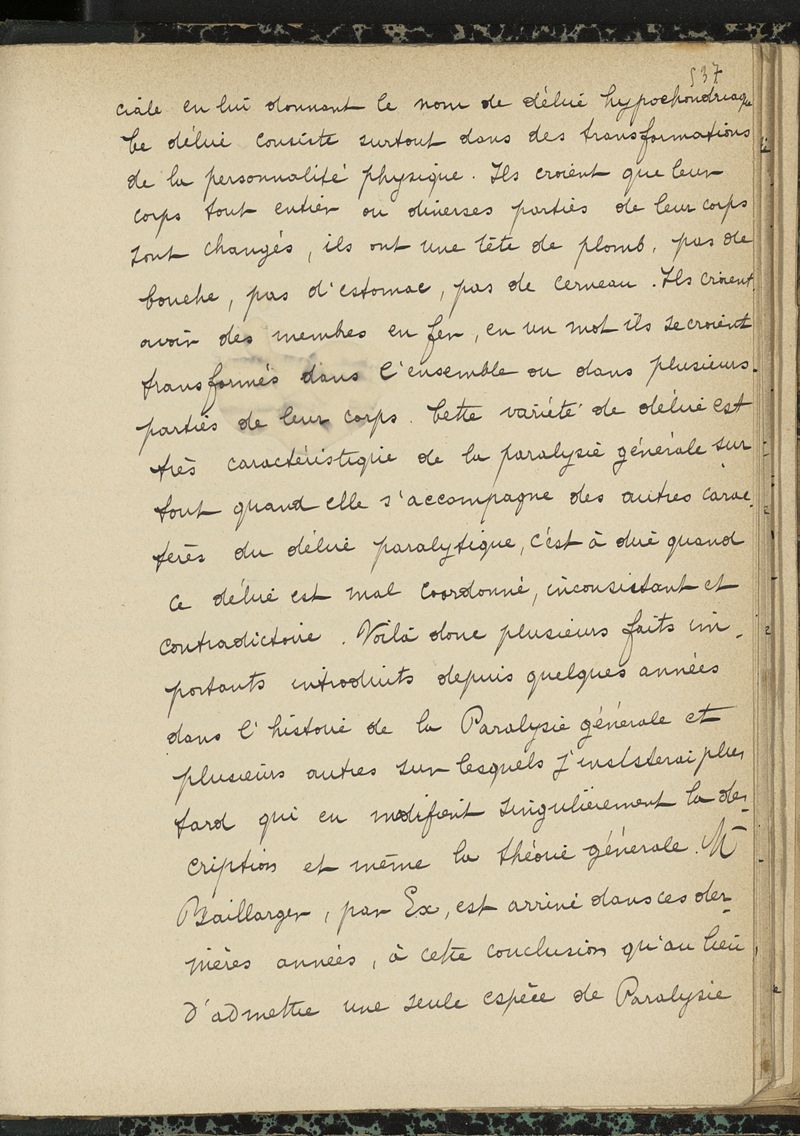 537
ciale en lui donnant le nom de délire hypochondriaque
Ce délire consiste surtout dans des transformations
de la personnalité physique. Ils croient que leur
corps tout entier ou diverses parties de leur corps
sont changés, ils ont une tête de plomb, pas de
bouche, pas d'estomac, pas de cerveau. Ils croient
avoir des membres en fer, en un mot ils se croient
transformés dans l'ensemble ou dans plusieurs
parties de leur corps. Cette variété de délire est
très caractéristique de la paralysie générale sur
tout quand elle s'accompagne des autres carac-
tères du délire paralytique, c'est à dire quand
ce délire est mal coordonné, inconsistant et
contradictoire. Voilà donc plusieurs faits im-
portants introduits depuis quelques années
dans l'histoire de la Paralysie générale et
plusieurs autres sur lesquels j'insisterai plus
tard qui en modifient singulièrement la des-
cription et même la théorie générale. Mr
Baillarger, par Ex, est arrivé dans ces der-
nières années, à cette conclusion qu'au lieu
d'admettre une seule espèce de Paralysie